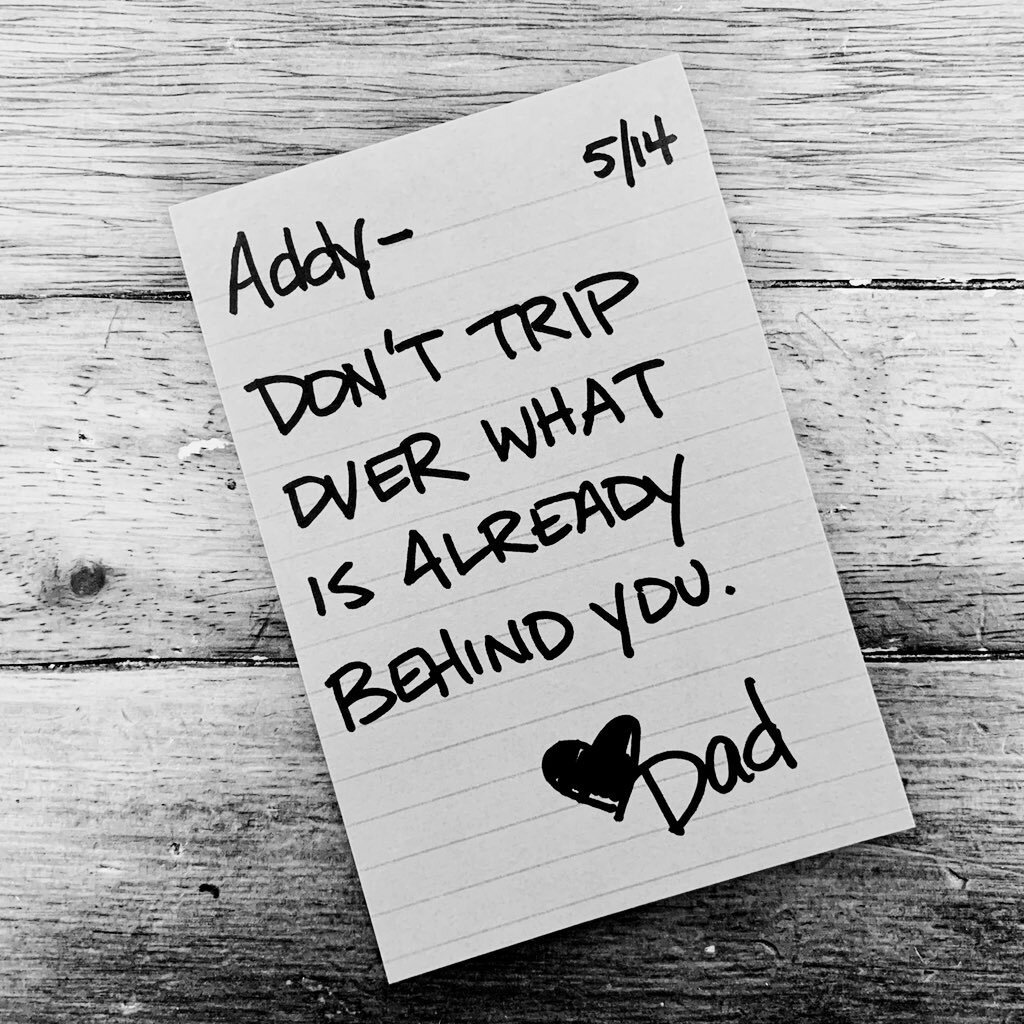 5/14
Addy-
DON'T TRIP
OVER WHAT
IS ALREADY
BEHIND YOU.
♥Dad